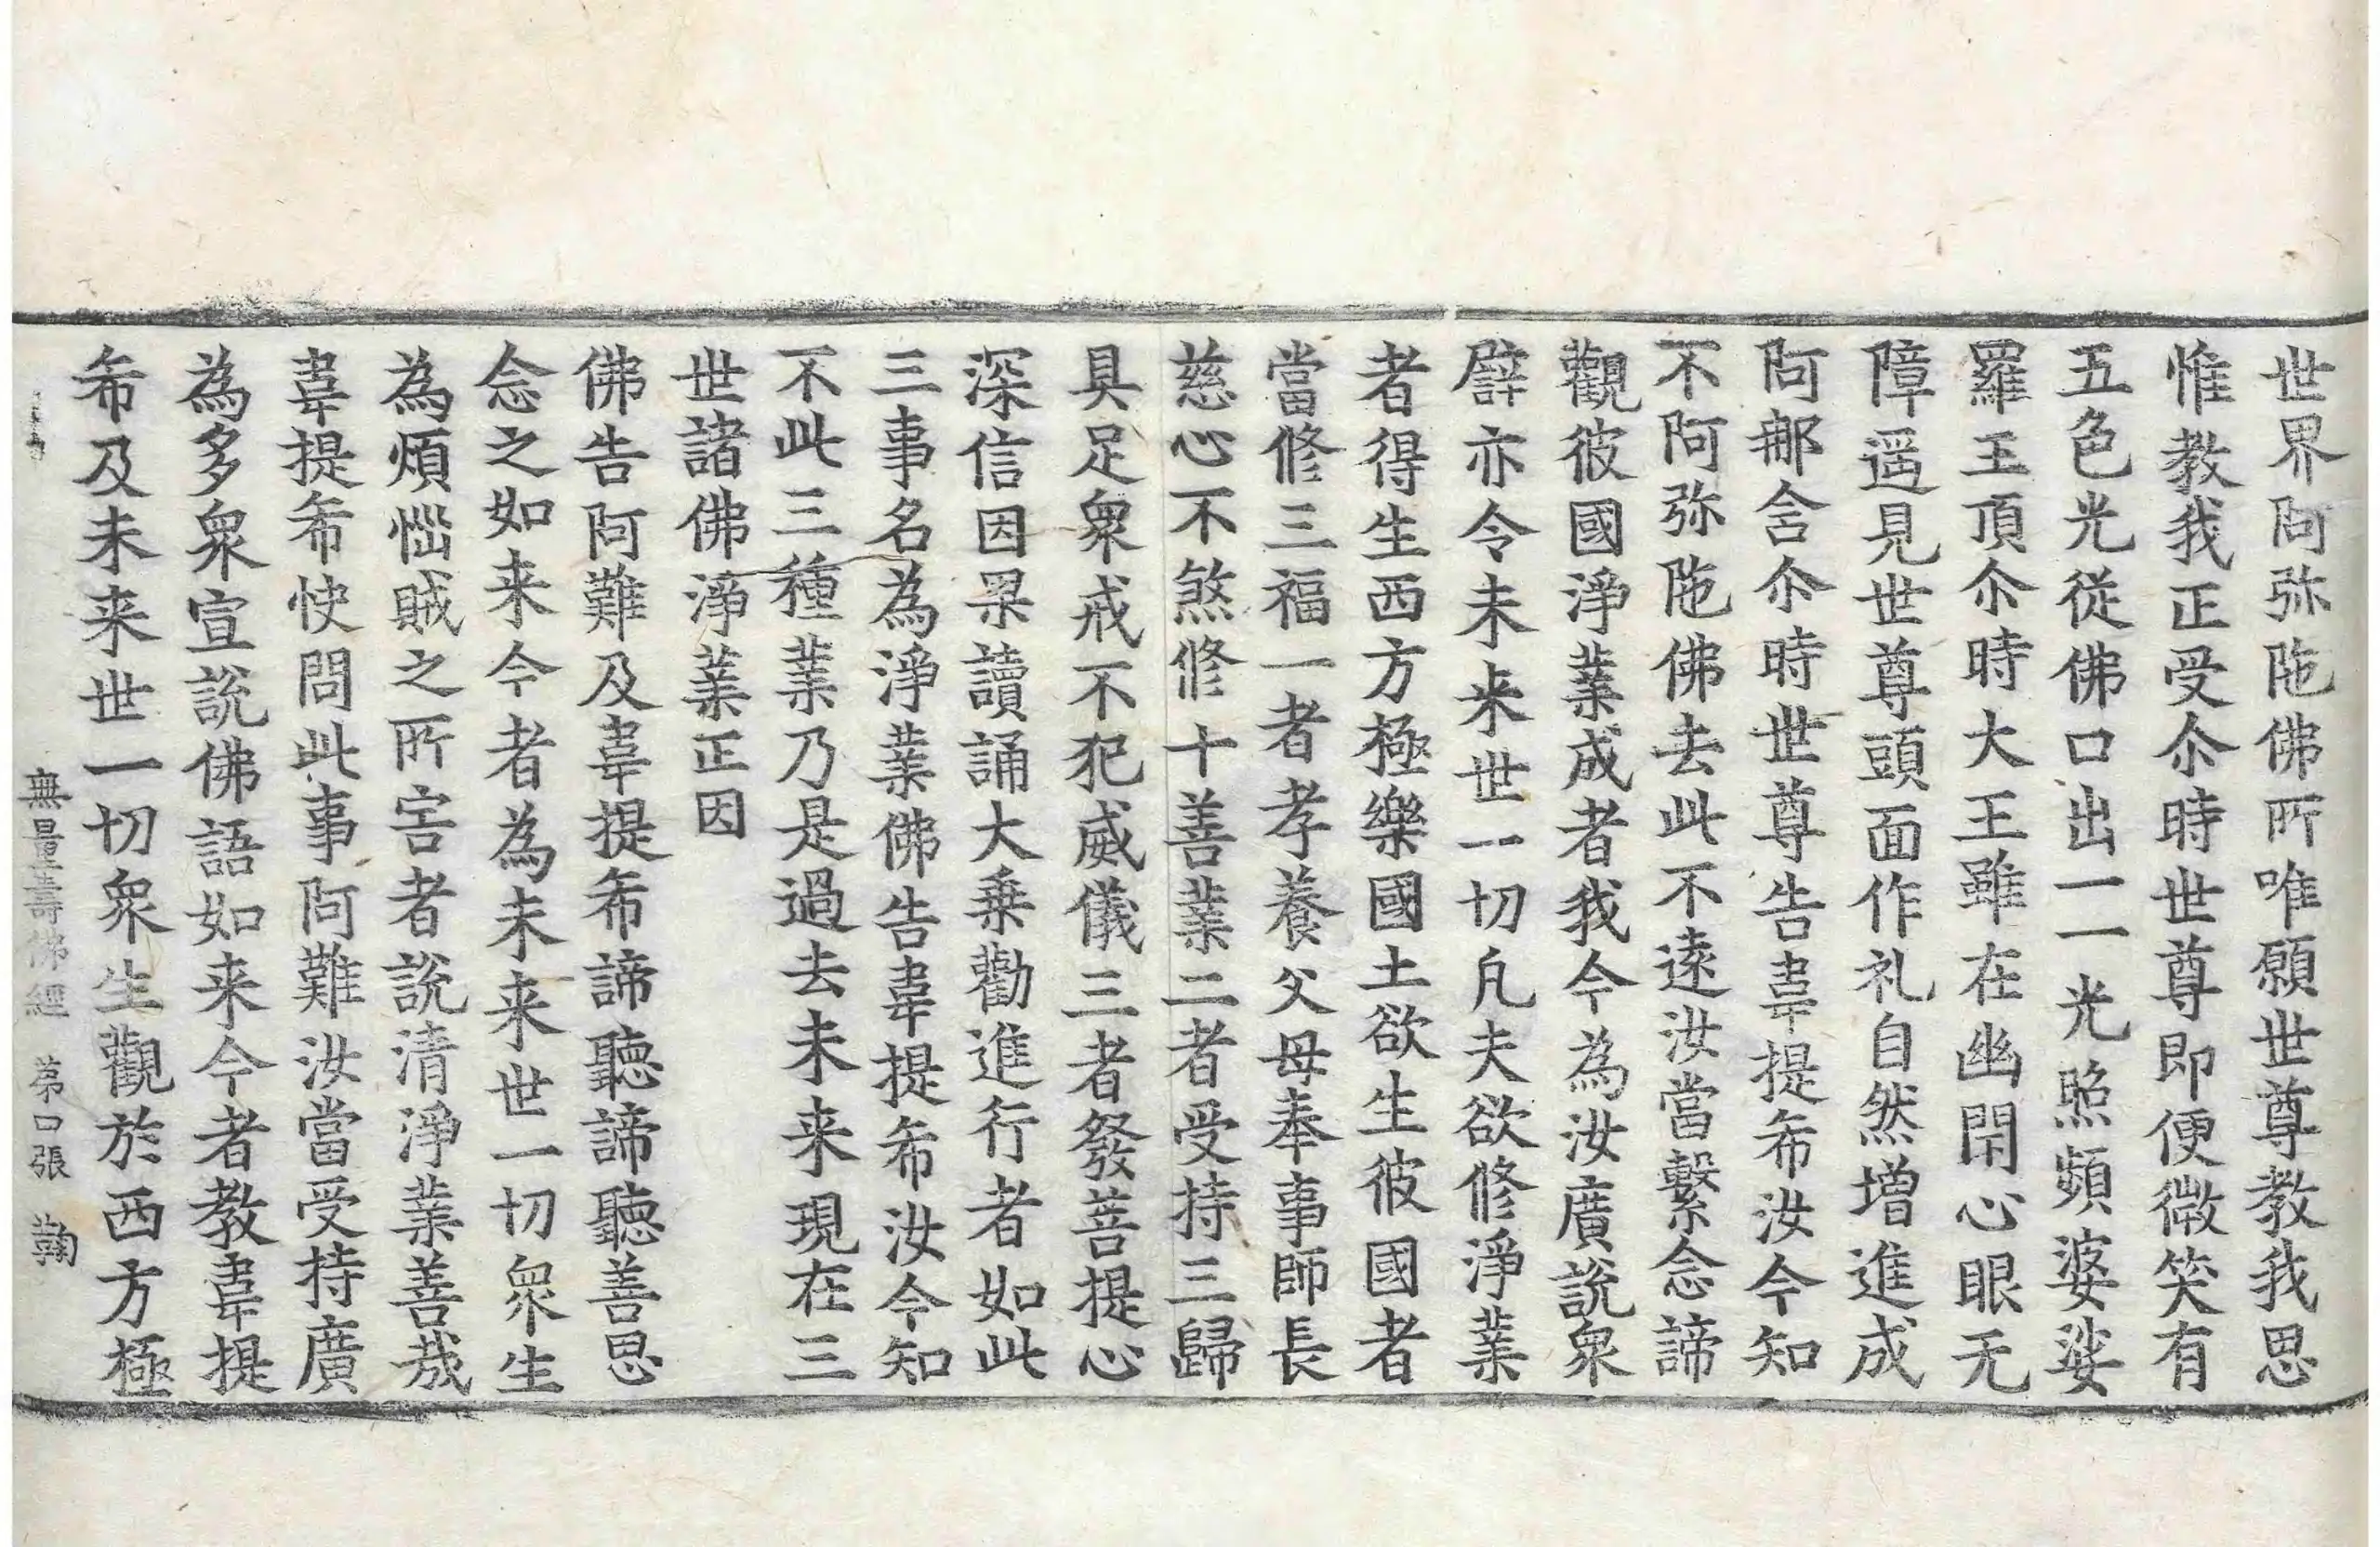 世界阿弥陁佛所唯願世尊教我思
惟教我正受尒時世尊即便微笑有
五色光從佛口出一一光照頻婆娑
羅王頂尒時大王雖在幽閇心眼无
障遥見世尊頭面作礼自然增進成
阿那含尒時世尊告韋提希汝今知
不阿弥陁佛去此不遠汝當繫念諦
觀彼國淨業成者我今為汝廣說衆
譬亦令未来世一切凡夫欲修淨業
者得生西方極樂國土欲生彼國者
當修三福一者孝養父母奉事師長
慈心不煞修十善業二者受持三歸
具足衆戒不犯威儀三者發菩提心
深信因果讀誦大乗勸進行者如此
三事名為淨業佛告韋提希汝今知
不此三種業乃是過去未来現在三
世諸佛淨業正因
佛告阿難及韋提希諦聽諦聽善思
念之如来今者為未来世一切衆生
為煩惱賊之所害者說清淨業善哉
韋提希快問此事阿難汝當受持廣
為多衆宣說佛語如来今者教韋提
希及未来世一切衆生觀於西方極
無量壽佛經 第口張 鞠